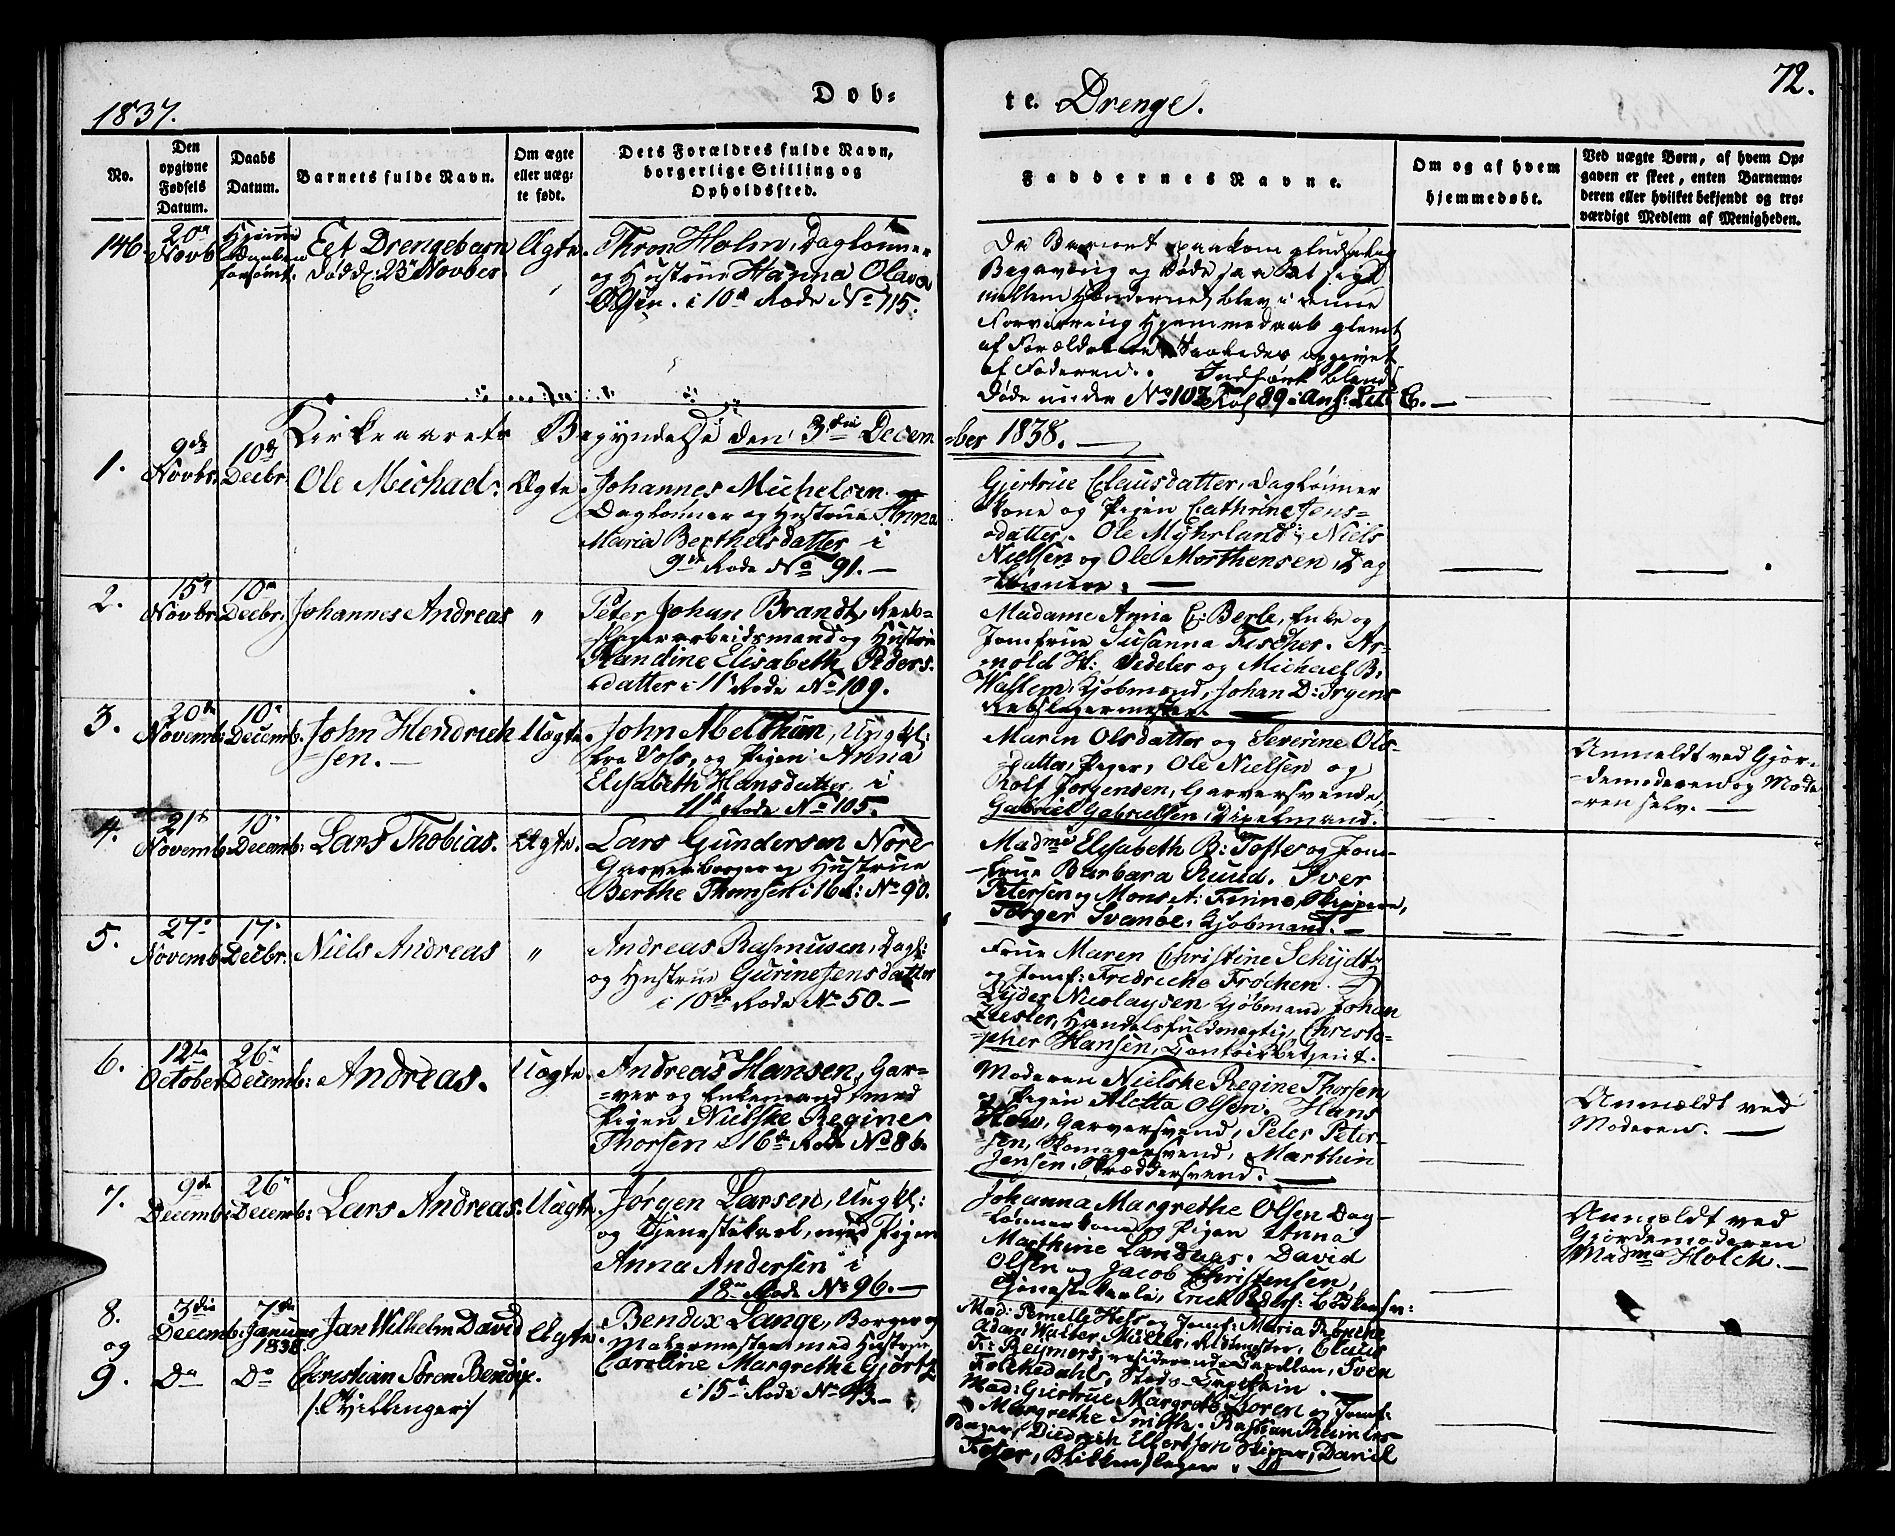 1837.
Dob-
te. Drenge.
72.
No.
Den opgivne Fødsels Datum.
Daabs Datum.
Barnets fulde Navn.
Om ægte eller uægte født.
Dets Forældres fulde Navn, borgerlige Stilling og Opholdssted.
Faddernes Navne.
Om og af hvem hjemmedøbt.
Ved uægte Børn, af hvem Opgaven er skeet, enten Barnemoderen eller hvilket bekjendt og troværdigt Medlem af Menigheden.
146
20de Novb
Hjemme
forsømt.
Eet Drengebarn
død d: 23de Novber.
Ægte.
Thom Holm, Daglønner
og Hustrue Hanna Olava
Olsen. i 10de Rode No 115.
Da Barnet paakom
og døde saa at sige
mellem Hænderne, blev i denne
Forvirring Hjemmedaab glemt
af Forældrene. Saaledes opgivet
af Faderen. Indført blandt
Døde under No 103 Fol 89 i Ans: Litr C.
Kirkeaarets Begyndelse den 3die Decem-
-ber 1838.
1.
9de Novbr.
10de Decbr.
Ole Michael.
Ægte
Johannes Michelsen
Daglønner og Hustrue Anna
Maria Berthelsdatter i
9de Rode No 91.
Giertrue Clausdatter, Daglønner
Kone og Pigen Cathrine Jens-
-datter. Ole Myhrland, Niels
Nielsen og Ole Morthensen, Dag
-lønnere.
2.
15de Novbr.
10de Decbr.
Johannes Andreas
"
Peter Johan Brandt, Reeb-
slagerarbeidsmand og Hustrue
Randine Elisabeth Peders-
datter i 11te Rode No 109.
Madame Anna C: Berle, Enke og
Jomfrue Susanna Fischer. Ar-
nold H: Vedeler og Michael B:
Wallem, Kjøbmænd, Johan D: Irgens
Rebslagermester.
3.
20de Novemb:
10de Decemb.
John Hendrich
-sen.
Uægte.
John Abel Thun, Ungkl:
fra Voss, og Pigen Anna
Elisabeth Hansdatter i
11te Rode No 105.
Maren Olsdatter og Severine Ols-
datter, Piger, Ole Nielsen og
Rolf Jørgensen, Garversvende,
Gabriel Gabrielsen,
Anmeldt ved Gjor-
-demoderen og Mode
-ren selv.
4.
21de Novemb.
10de Decemb:
Lars Thobias.
Ægte.
Lars Gundersen Nore
Garverborger og Hustrue
Berthe Thomsen i 16d: No 90.
Madme Elisabeth B: Tofte og Jom-
-frue Barbara Ruud. Iver
Petersen og Mons A: Finne, Skippere,
Torger Svanøe, Kjøbmand.
5.
27de Novemb.
17de Decbr.
Niels Andreas
"
Andreas Rasmusen, Dagl:
og Hustrue Gurine Jensdatter
i 10de Rode No 50.
Frue Maren Christine Schydtz
og Jomf: Fredricke Frøchen.
Lyder Nicolaysen Kjøbmand, Johan
Ziesler, Handelsfuldmægtig, Christo-
-pher Hansen, Contoirbetjent.
6.
12te October
26de Decemb:
Andreas.
Uægte.
Andreas Hansen, Gar-
-ver og Enkemand med
Pigen Nielske Regine
Thorsen i 16de Rode No 86.
Moderen Nielske Regine Thorsen
og Pigen Aletta Olsen. Hans
How, Garversvend, Peter Peter-
-sen, Skomagersvend, Marthin
Jensen, Skræddersvend.
Anmældt ved
Moderen.
7.
9de Decemb:
26de Decemb:
Lars Andreas.
Uægte.
Jørgen Larsen, Ungkl:
og Tjenestekarl, med Pigen
Anna Andersen i
18de Rode No 96.
Johanna Margrethe Olsen Dag-
-lønnerkone og Pigen Anna
Marthine Landaas. David
Olsen og Jacob Christensen,
Tjenestekarle, Erich Peders:
Anmældt ved
Gjordemoderen
Madme Holck.
8.
og
9.
3die Decemb:
7de Januar 1838.
Do
Do
Jan Wilhelm David
Christian Søren Bendix.
/:Tvillinger:/
Ægte.
Bendix Lange, Borger og
Malermester med Hustrue
Caroline Margrethe Gjørtz
i 15de Rode No 43.
Mad: Pernelle Hess og Jomf: Maria
Adam Walter Müller, Claus
F: Reymers, residerende Capellan, Sven
Follkedahl, Stads-Captain.
Mad: Giertrue Margrete Soren og Jomf:
Margrethe Smith. Bastian
Bager, Diedrich Ellertsen Skipper, Daniel
Blikkenslager.